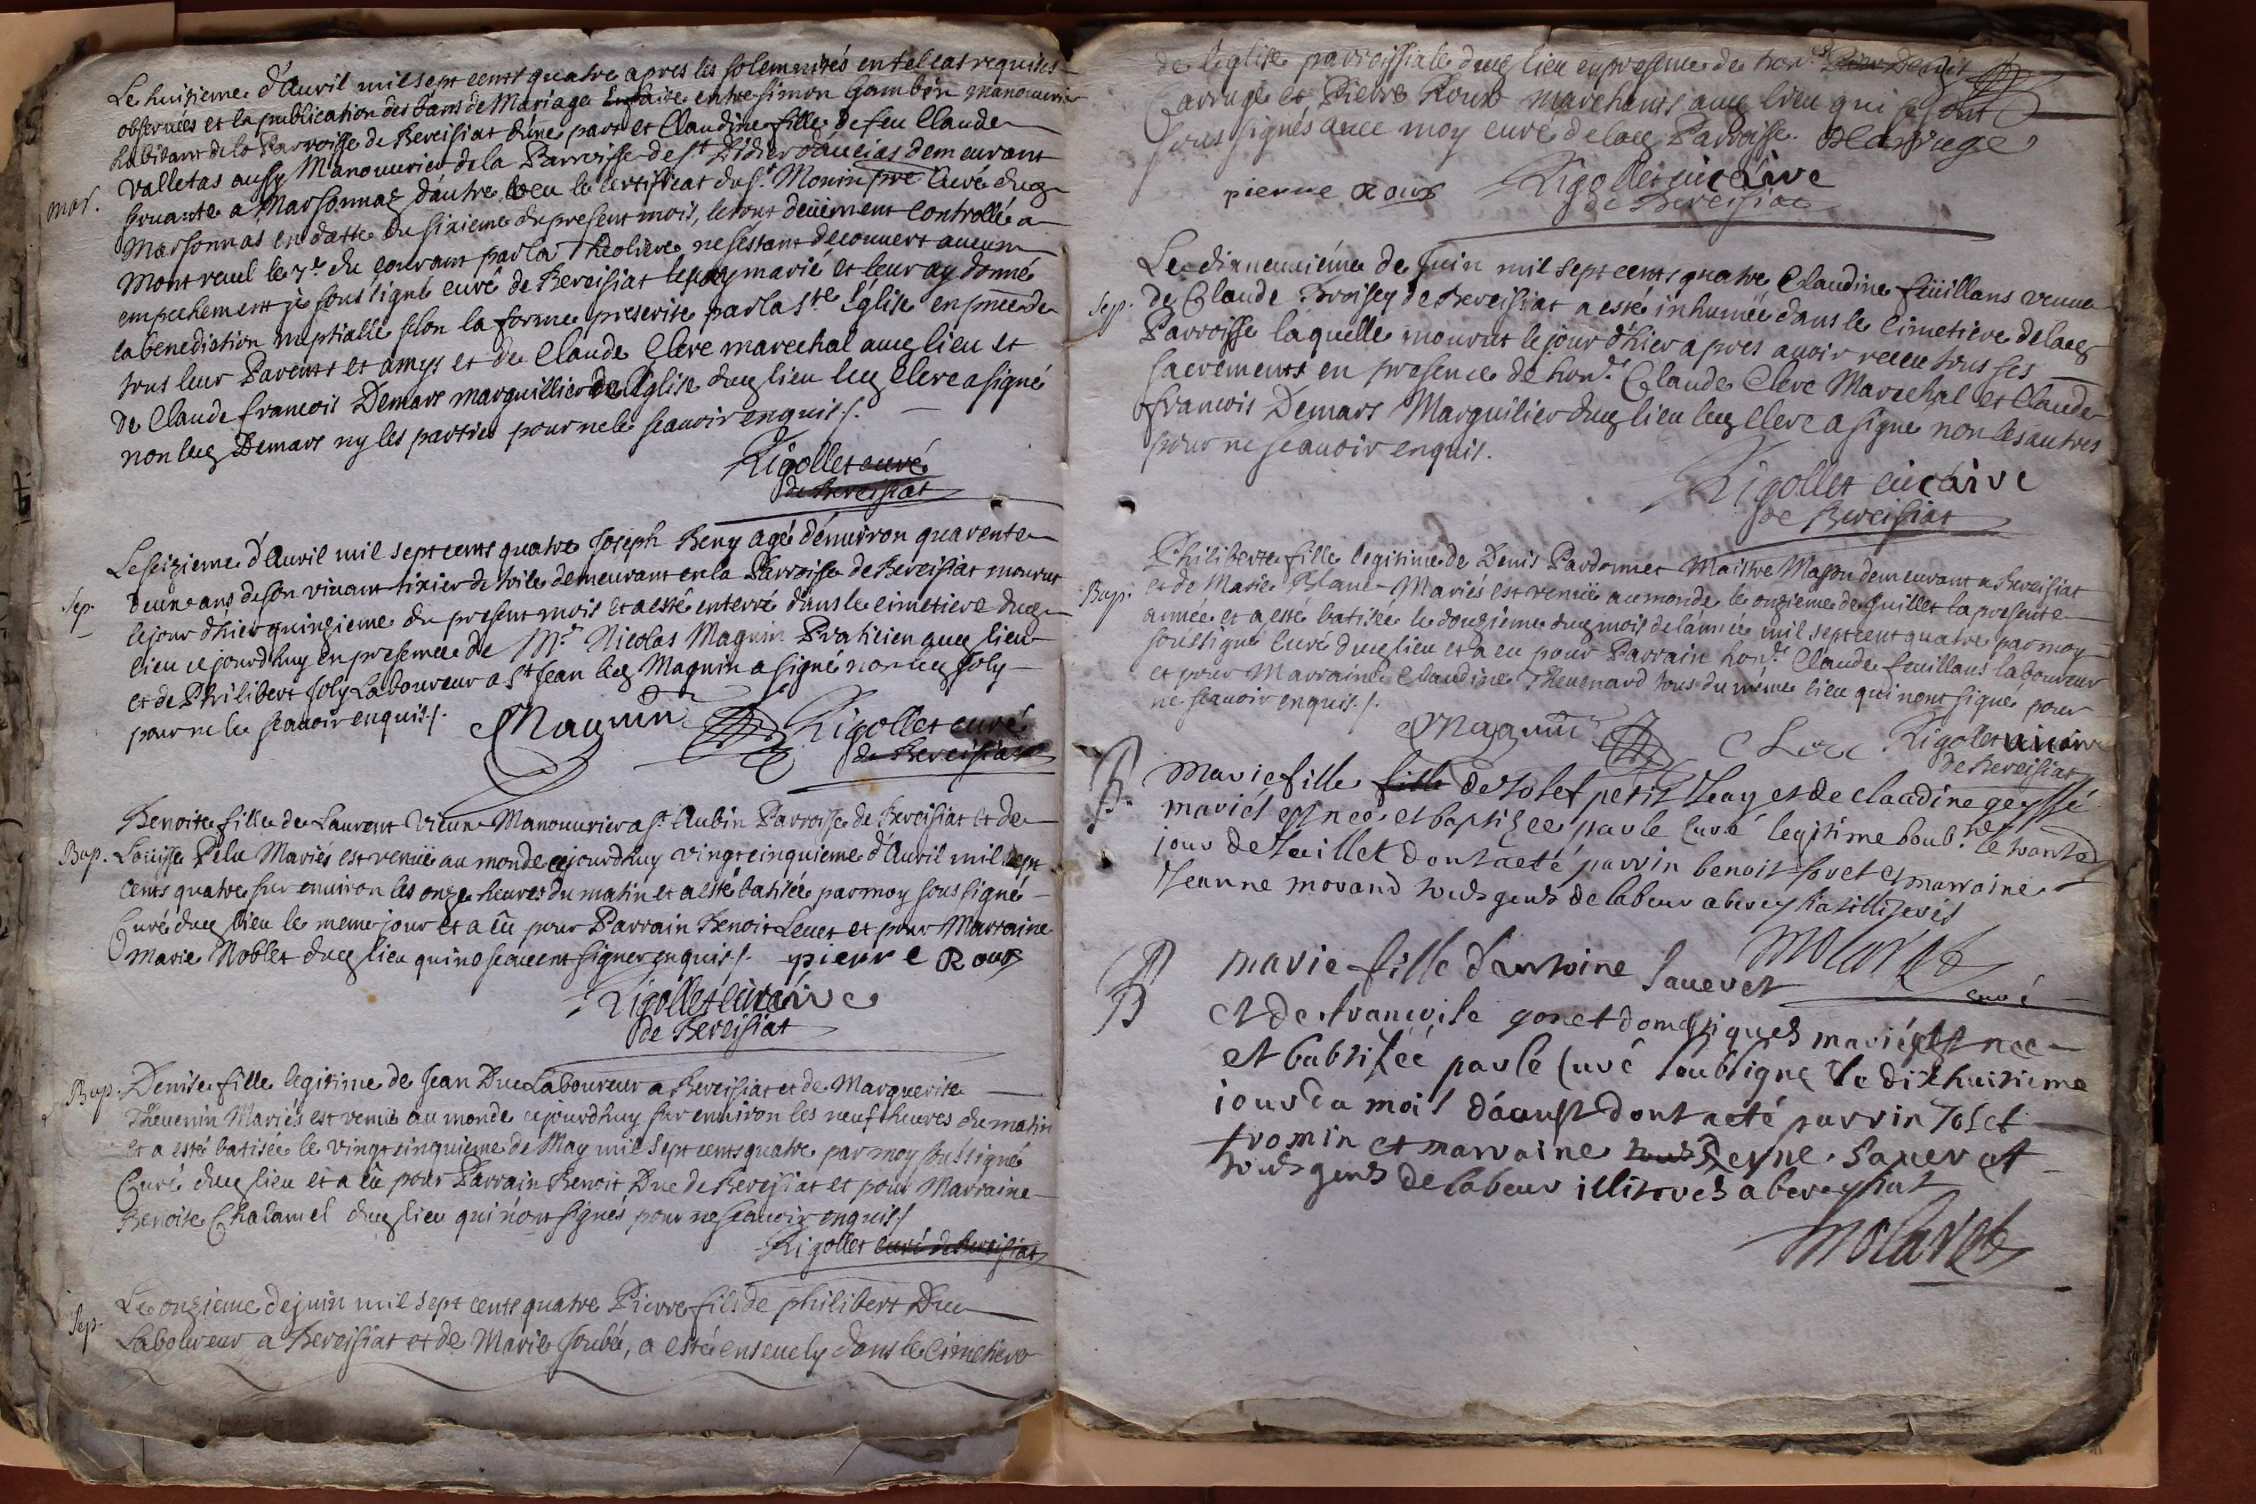 Le huitieme d'Auril mil sept cents quatre apres les solemnités en tel cas requises
observées et la publication des bans de Mariage entre simon Gambin manouurier
habitant de la Parroisse de Bereisiat d'úne part et Claudine fille de feu Claude
mar.
Valletas aussy Manouurier de la Parroisse de st Didier d'aucias demeurant
seruante a Marsonnas d'autre veu le certifficat du sr. Monin Curé dud.
Marsonnas en datte du sixieme du present mois, le tout deüement Controllé a
Montreuil le 7e. du courant par la Theoliere ne sestant decouuert aucun
empechement je soussigné curé de Bereisiat les ay marié et leur ay donné
la benediction nuptialle selon la forme prescrite par la ste Eglise en pnce de
tous leur Parents et amys et de Claude Clerc marechal aud. lieu et
de Claude francois Demars marguillier de l'Eglise dud. lieu led. Clerc a signé
non led. Demars ny les parties pour ne le scauoir enquis /.
Rigollet curé
de Bereisiat
Le seizieme d'Auril mil sept cents quatre Joseph Beny agé d'enuiron quarente
deux ans de son viuant tixier de toile demeurant en la Parroisse de Bereisiat mourut
Sep.
le jour d'hier quinzieme du present mois et a esté enterré dans le cimetiere dud.
lieu cejourd'huy en presence de Mr. Nicolas Magnin Praticien aud. lieu
et de Philibert Joly Laboureur a st Jean led. Magnin a signé non led. Joly
pour ne le scauoir enquis /.
Magnin
Rigollet curé
de Bereisiat
Benoite fille de Laurent Vieux Manouurier a st. Aubin Parroisse de Bereisiat et de
Bap.
Loüisse Pelu Mariés est venüe au monde cejourd'huy vingt cinquieme d'Auril mil sept
cents quatre sur enuiron les onze heures du matin et a esté batisée par moy sous signé
Curé dud. lieu le meme jour et a eû pour Parrain Benoit Leuet et pour Marraine
Marie Noblet dud. lieu qui ne scauent signer enquis /.
pierre Roux
Rigollet
de Bereisiat
Bap.
Denise fille legitime de Jean Duc Laboureur a Bereisiat et de Marguerite
Theuenin Mariés est venüe au monde cejourd'huy sur enuiron les neuf heures du matin
et a esté batisée le vingt cinquieme de May mil sept cents quatre par moy soussigné
Curé dud. lieu et a eû pour Parrain Benoit Duc de Bereisiat et pour Marraine
Benoite Chalamel dud. lieu qui n'ont signés pour ne scauoir enquis /
Rigollet curé de Bereisiat
Sep.
Le onzieme de juin mil sept cents quatre Pierre fils de philibert Duc
Laboureur a Bereisiat et de Marie soubé, a esté enseuely dans le Cimetiere
de l'eglise parroissialle dud. lieu en presence de hon.
Carruge et Pierre Roux Marchants aud. lieu qui se sont
sous signés auec moy curé de lad. Parroisse.
Carruge
pierre Roux
Rigollet
de Bereisiat
Le dixneuuiéme de Juin mil sept cents quatre Claudine feüillans veuue
Sep.
de Claude Broisey de Bereisiat a esté inhumée dans le Cimetiere de lad.
Parroisse laquelle mourut le jour d'hier apres auoir receu tous ses
sacrements en presence de hon. Claude Clerc Marechal et Claude
francois Demars Marguilier dud. lieu led. Clerc a signé non les autres
pour ne scauoir enquis.
Rigollet
de Bereisiat
Philiberte fille legitime de Denis Pardonnet Maistre Masson demeurant a Bereisiat
Bap.
et de Marie Blanc Mariés est venüe au monde le onzieme de Juillet la presente
année et a esté batisée le douzieme dud. mois de l'année mil sept cent quatre par moy
soussigné Curé dud. lieu et a eu pour Parrain hon. Claude fouillans laboureur
et pour Marraine Claudine Theuenard tous du méme lieu qui n'ont signé pour
ne scauoir enquis /.
Magnin
Clerc
Rigollet
de Bereisiat
B.
marie fille fille de Josef petit Jean et de claudine geyssé
mariés est neé et baptizeé par le Curé legitime soub.ne le trante
jour de Juillet dont a eté parrin benoit foret et marraine
Jeanne morand tous gens de labeur a bereysia illiterés
Molaret
curé
B
marie fille d'antoine Saueret
et de francoise gonet domestiques mariés est nee
et babtiseé par le Curé soubsigné le dixhuitieme
jour du mois d'aoust dont a eté parrin Josef
fromin et marraine tous Jeanne Saueret
tous gens de labeur illiterés a bereysiat
Molaret